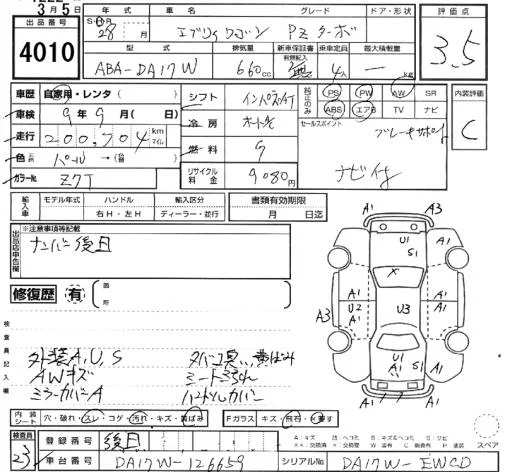 3月 5日
出品番号
4010
年式 車名 グレード ドア・形状 評価点
S・H
28年 月 エブリィワゴン PZターボ
3.5
型式 排気量 新車保証書 乗車定員 最大積載量
有無記入
ABA-DA17W 660cc 無 4人 — kg
車歴 自家用・レンタ( )
シフト インパネAT
純正のみ PS PW AW SR
ABS エアB TV ナビ
内装評価
C
車検 9年 9月 ( 日)
冷房 オートAC
セールスポイント
ブレーキサポート
走行 200,704 km マイル
燃料 G
色 パール → ( )
ナビ付
カラーNo. Z7T
リサイクル料金 9080円
輸入車 モデル年式 ハンドル 輸入区分 書類有効期限
右H・左H ディーラー・並行 月 日迄
出品店申告欄
※注意事項等記載
ナンバー後日
修復歴 有 箇所
検査員記入欄
外装A,U,S タバコ臭 黄ばみ
AWキズ シートこすれ
ミラーカバーA ハンドルカバー
A1 A3
U1 A1
S1
A1 A1
A3 U2 U3
A1 A1
U1 S1
A1 A1
A1 A1
内装シート 穴・破れ・スレ・コゲ・汚れ・キズ・黄ばみ
Fガラス キズ・飛石・
スペア
検査員 23
登録番号 後日
車台番号 DA17W-126659
シリアルNo. DA17W-EWCD